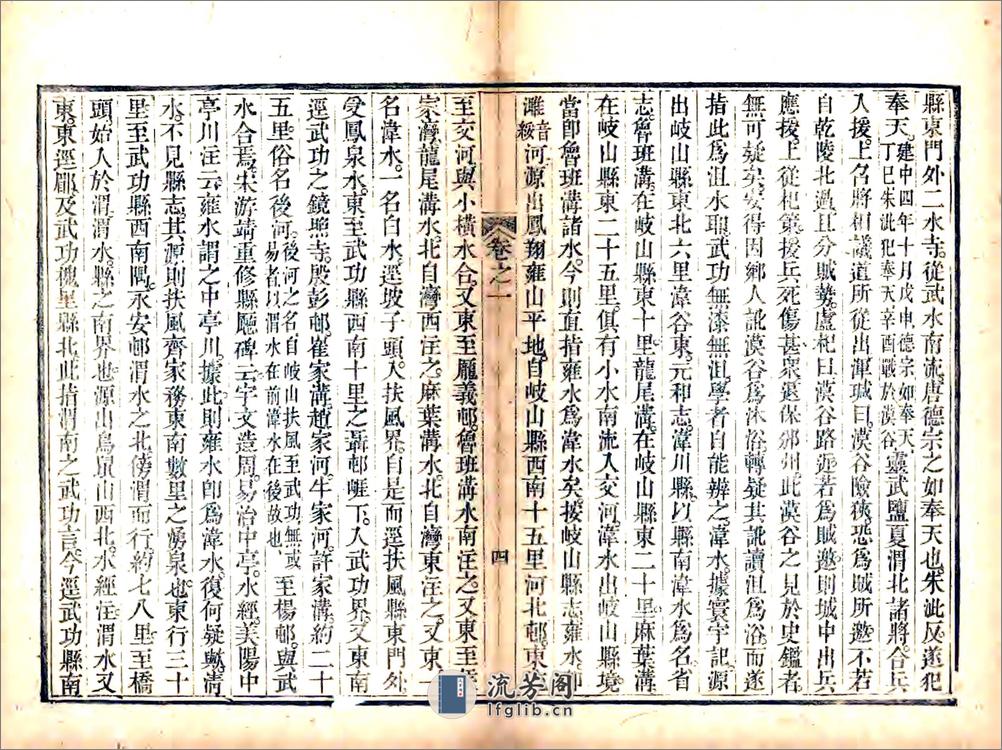 縣東門外二水寺從武水南流唐德宗之如奉天也朱泚反遂犯
奉天建中四年十月戊申德宗如奉天丁巳朱泚犯奉天辛酉戰於漠谷靈武鹽夏渭北諸將合兵
入援上召將相議道所從出渾瑊曰漠谷險狹恐為賊所邀不若
自乾陵北過且分賊勢盧杞曰漠谷路近若為賊邀則城中出兵
應援上從杞策援兵死傷甚衆退保邠州此漠谷之見於史鑑者
無可疑矣安得因鄉人訛漠谷為沐浴轉疑其訛讀沮為浴而遂
指此爲沮水耶武功無漆無沮學者自能辨之湋水據寰宇記源
出岐山縣東北六里湋谷東元和志湋川縣以縣南湋水爲名省
志魯班溝在岐山縣東十里龍尾溝在岐山縣東二十里麻葉溝
在岐山縣東二十五里俱有小水南流入交河湋水出岐山境
當卽魯班溝諸水今則直指雍水爲湋水矣按岐山縣志雍水卽
濰音綏河源出鳳翔雍山平地自岐山縣西南十五里河北邨東
卷之一
四
至交河與小橫水合又東至龎義邨魯班溝水南注之又東至
家灣龍尾溝水北自灣西注之麻葉溝水北自灣東注之又東
名湋水一名白水逕坡子頭入扶風界自是而逕扶風縣東門外
受鳳泉水東至武功縣西南十里之聶邨崕下入武功界又東南
逕武功之鏡照寺殷彭邨崔家溝趙家河牛家河許家溝約二十
五里俗名後河後河之名自岐山扶風至武功無或易者以渭水在前湋水在後故也至楊邨與武
水合焉宋游靖重修縣廳碑云宇文造周易治中亭水經美陽中
亭川注云雍水謂之中亭川據此則雍水卽爲湋水復何疑歟淸
水不見縣志其源則扶風齊家務東南數里之蕩泉也東行三十
里至武功縣西南隅永安邨渭水之北傍渭而行約七八里至橋
頭始入於渭渭水縣之南界也源出鳥鼠山西北水經注渭水又
東東逕郿及武功槐里縣北此指渭南之武功言今逕武功縣南
流芳阁
lfglib.cn